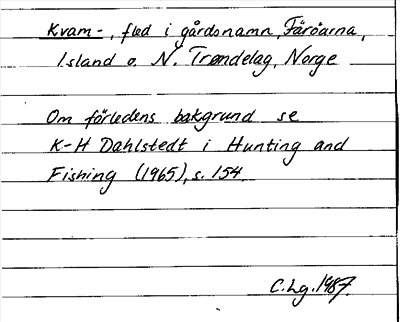 Kvam-, fled i gårdsnamn, Färöarna,
Island o. N. Trøndelag, Norge
Om förledens bakgrund se
K-H Dahlstedt i Hunting and
Fishing (1965), s. 154.
C.Lg. 1987.